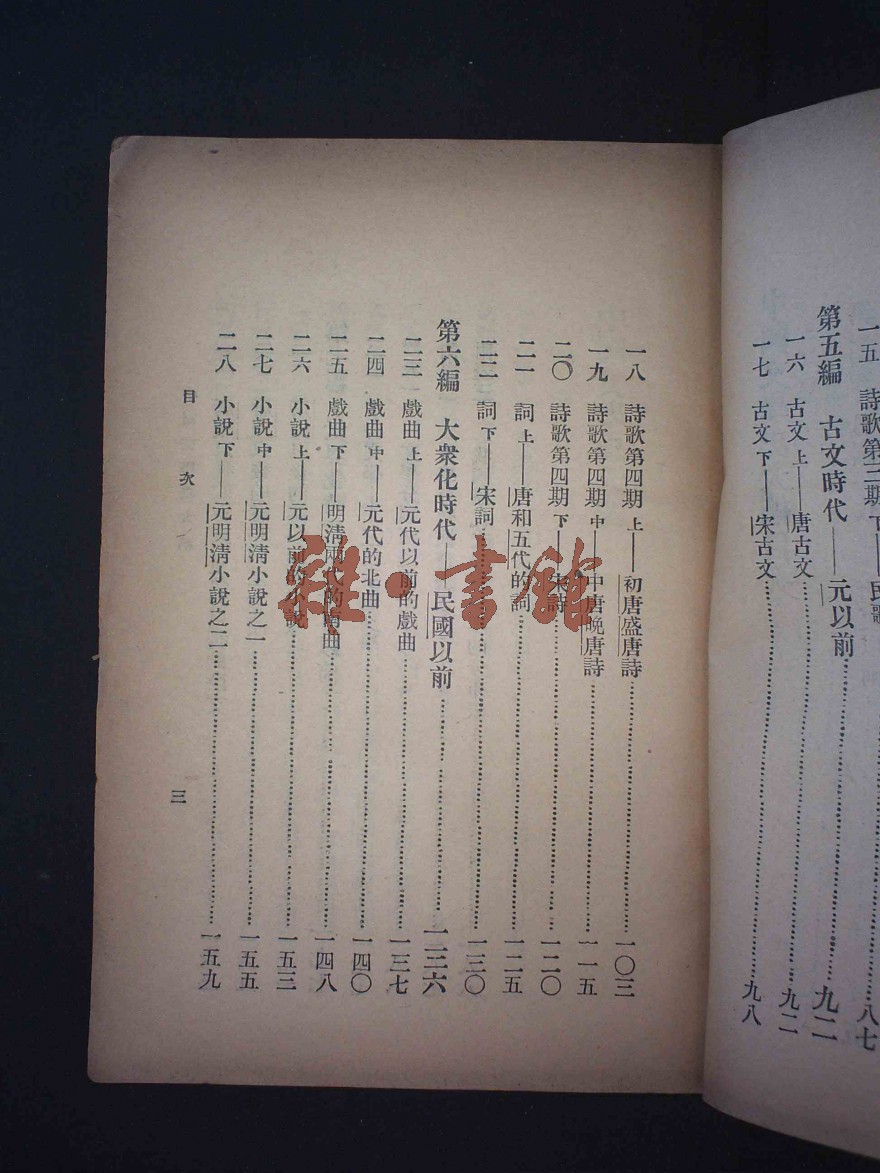 一五 詩歌第三期 下——民歌……八七
第五編 古文時代——元以前……九二
一六 古文 上——唐古文……九二
一七 古文 下——宋古文……九八
一八 詩歌第四期 上——初唐盛唐詩……一〇三
一九 詩歌第四期 中——中唐晚唐詩……一一五
二〇 詩歌第四期 下——宋詩……一二〇
二一 詞 上——唐和五代的詞……一二五
二二 詞 下——宋詞……一三〇
第六編 大衆化時代——民國以前……一三六
二三 戲曲 上——元代以前的戲曲……一三七
二四 戲曲 中——元代的北曲……一四〇
二五 戲曲 下——明清兩代的南曲……一四八
二六 小說 上——元以前的小說……一五三
二七 小說 中——元明清小說之一……一五五
二八 小說 下——元明清小說之二……一五九
目 次 三
雜·書館